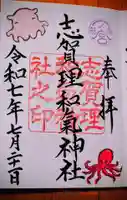 奉拝
志賀理和氣神社
志賀理
和氣神
社之印
令和七年七月二十一日